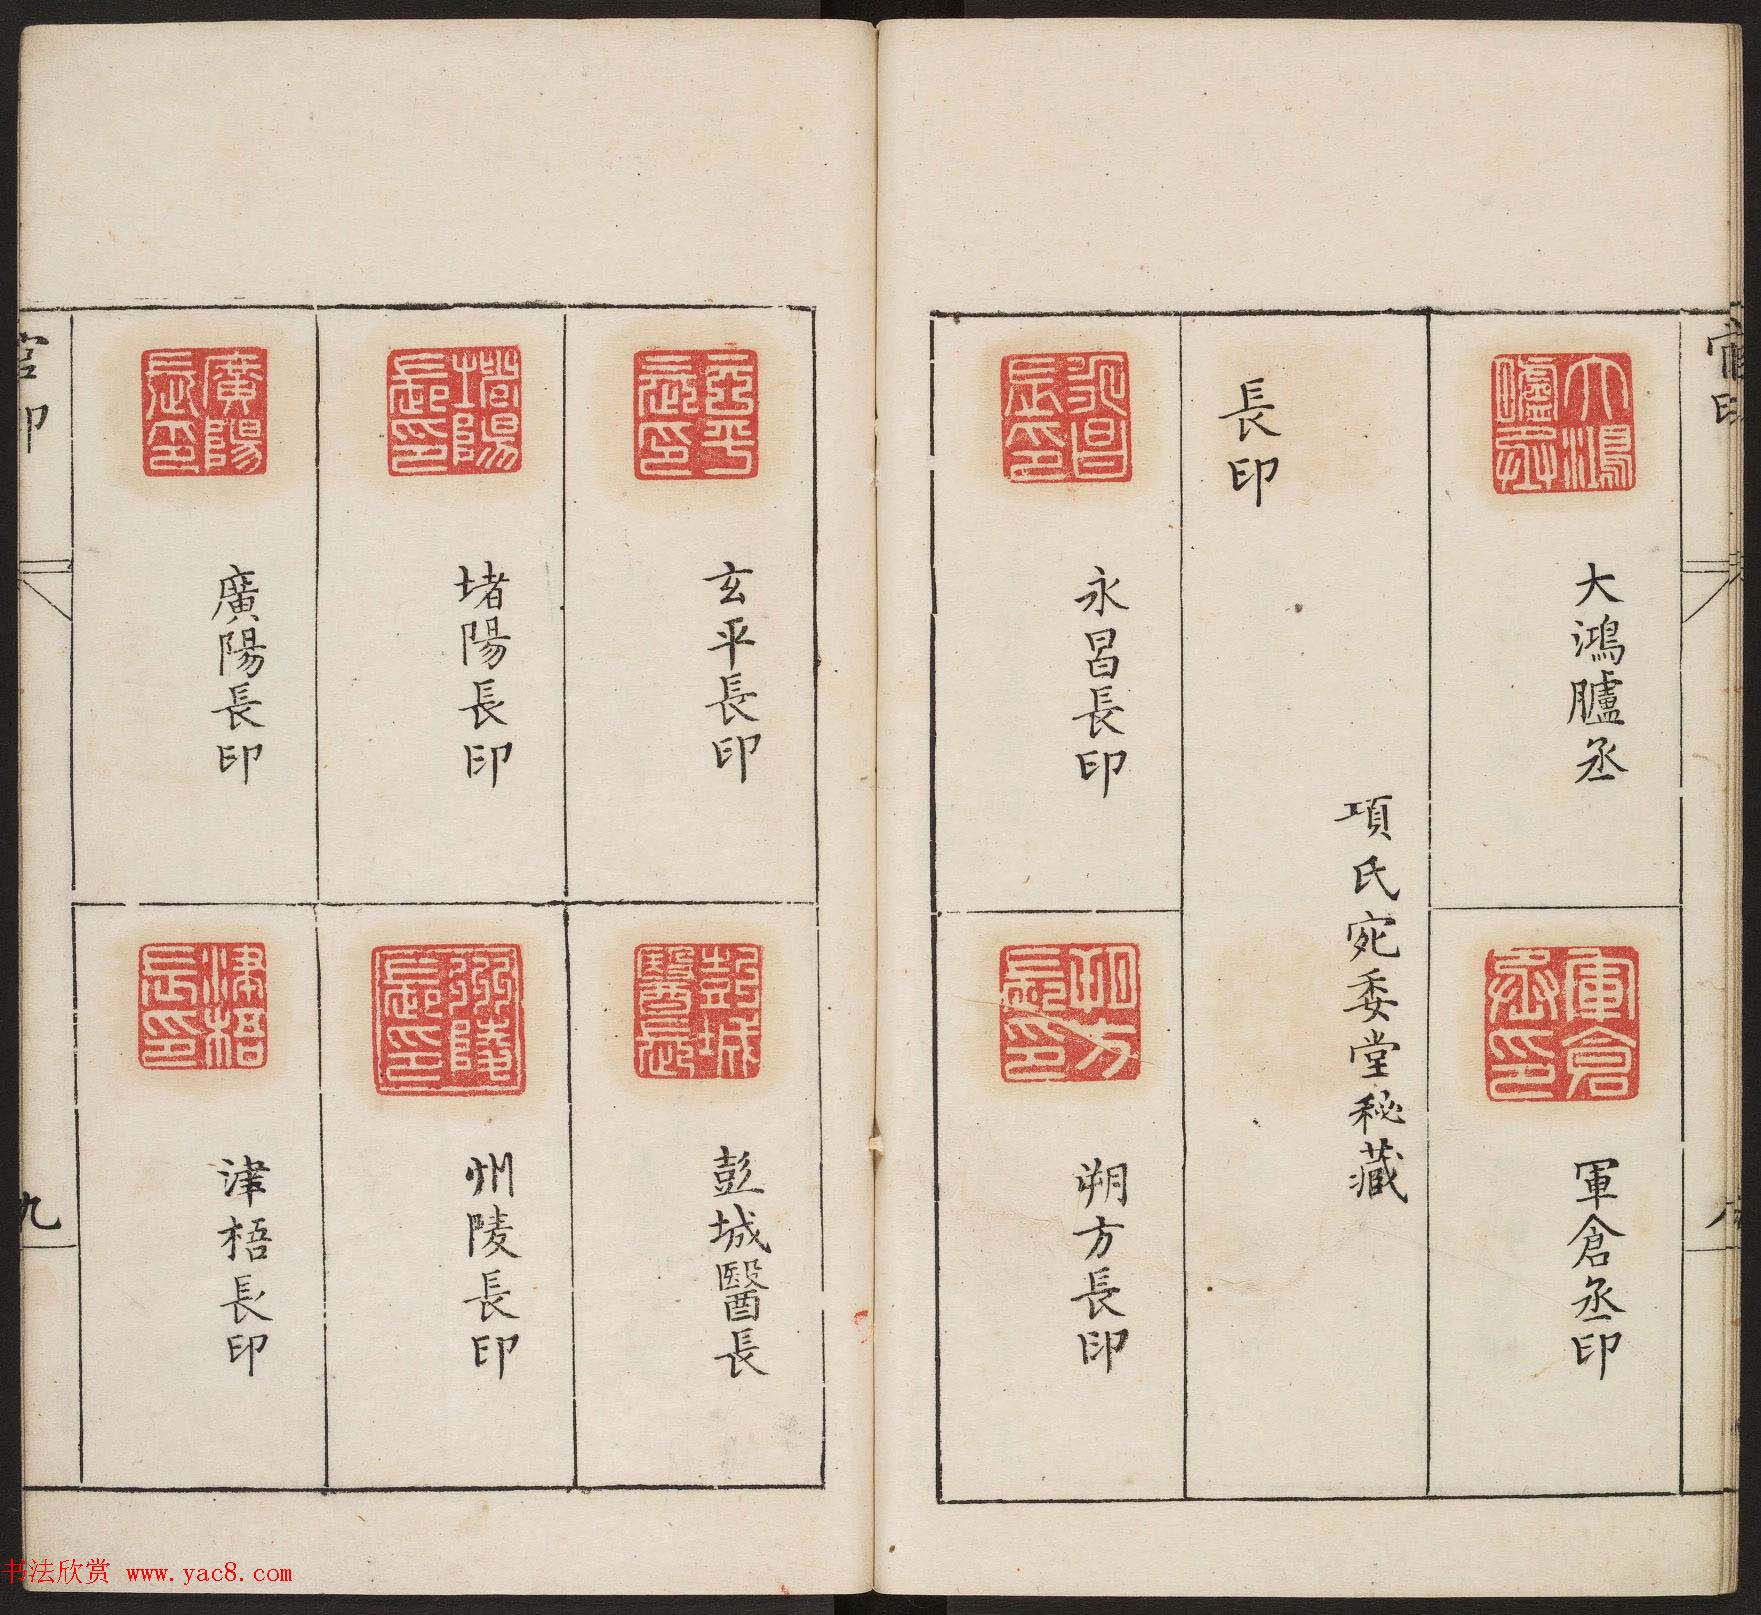 大鴻臚丞
軍倉丞印
項氏宛委堂秘藏
長印
永昌長印
朔方長印
玄平長印
彭城醫長
堵陽長印
州陵長印
廣陽長印
津梧長印
官印
九
书法欣赏 www.yac8.com